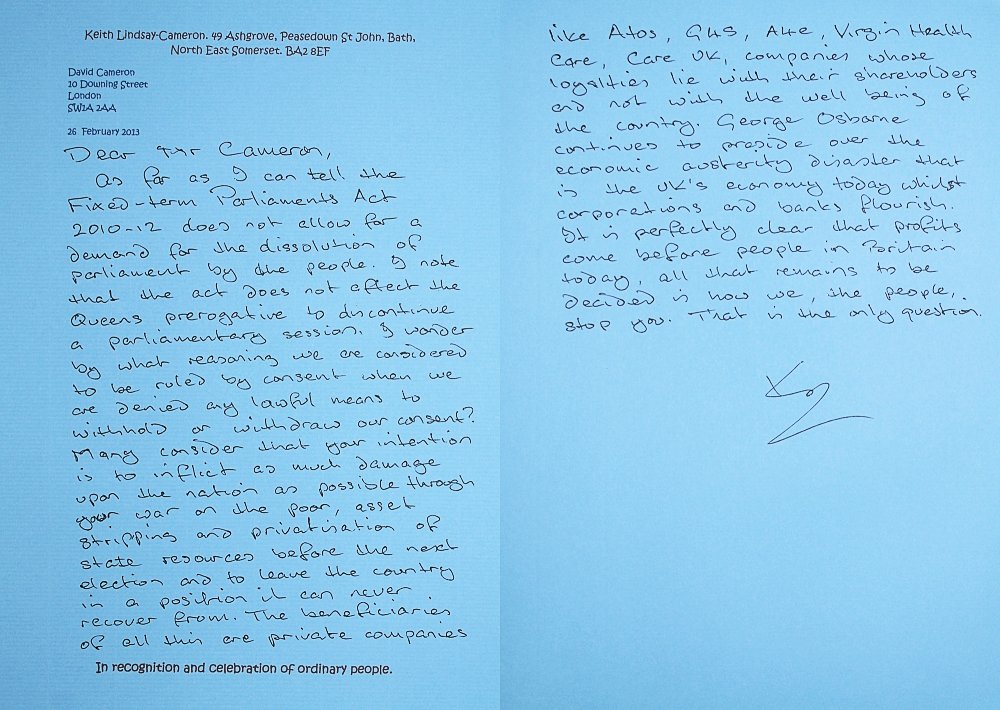 Keith Lindsay-Cameron. 49 Ashgrove, Peasedown St John, Bath,
North East Somerset. BA2 8EF
David Cameron
10 Downing Street
London
SW1A 2AA
26 February 2013
Dear Mr Cameron,
As far as I can tell the
Fixed-term Parliaments Act
2010-12 does not allow for a
demand for the dissolution of
parliament by the people. I note
that the act does not affect the
Queens prerogative to discontinue
a parliamentary session. I wonder
by what reasoning we are considered
to be ruled by consent when we
are denied any lawful means to
withhold or withdraw our consent?
Many consider that your intention
is to inflict as much damage
upon the nation as possible through
your war on the poor, asset
stripping and privatisation of
state resources before the next
election and to leave the country
in a position it can never
recover from. The beneficiaries
of all this are private companies
In recognition and celebration of ordinary people.
like Atos, G4S, A4e, Virgin Health
Care, Care UK, companies whose
loyalties lie with their shareholders
and not with the well being of
the country. George Osborne
continues to preside over the
economic austerity disaster that
is the UK's economy today whilst
corporations and banks flourish.
It is perfectly clear that profits
come before people in Britain
today, all that remains to be
decided is how we, the people,
stop you. That is the only question.